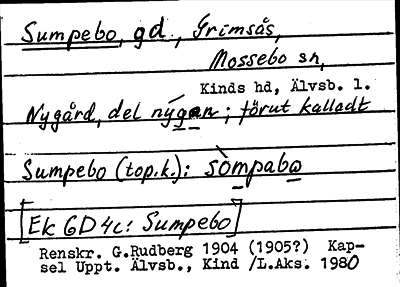 Sumpebo, gd., Grimsås,
Mossebo sn,
Kinds hd, Älvsb. l.
Nygård, del nýgan; förut kalladt
Sumpebo (top.k.): sòmpabo
[Ek GD 4c: Sumpebo]
Renskr. G.Rudberg 1904 (1905?) Kap-
sel Uppt. Älvsb., Kind /L.Aks. 1980